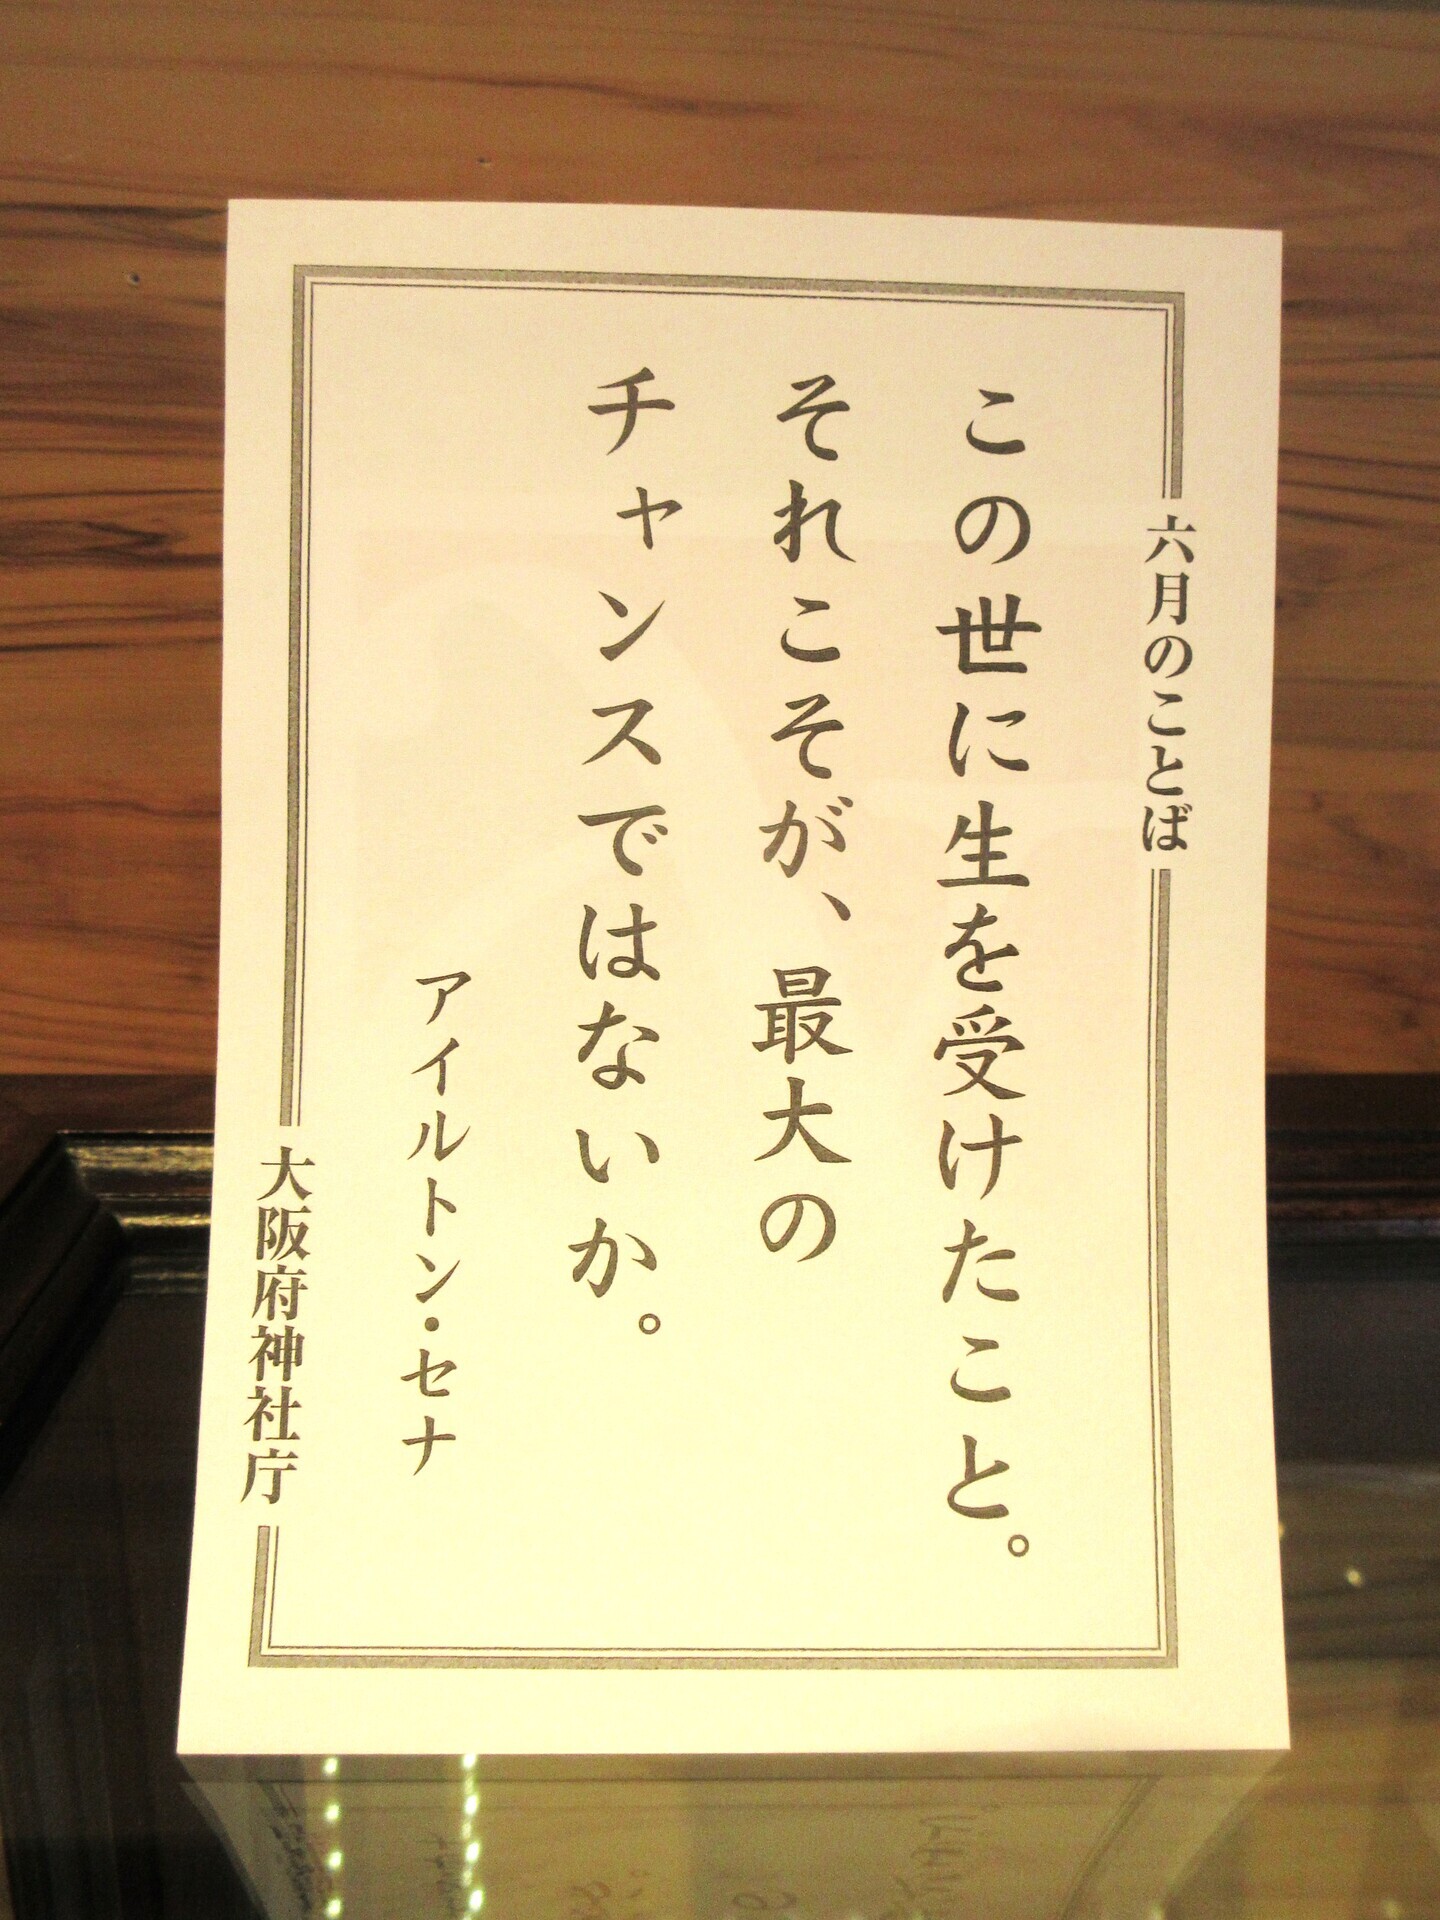 六月のことば
この世に生を受けたこと。
それこそが、最大の
チャンスではないか。
アイルトン・セナ
大阪府神社庁